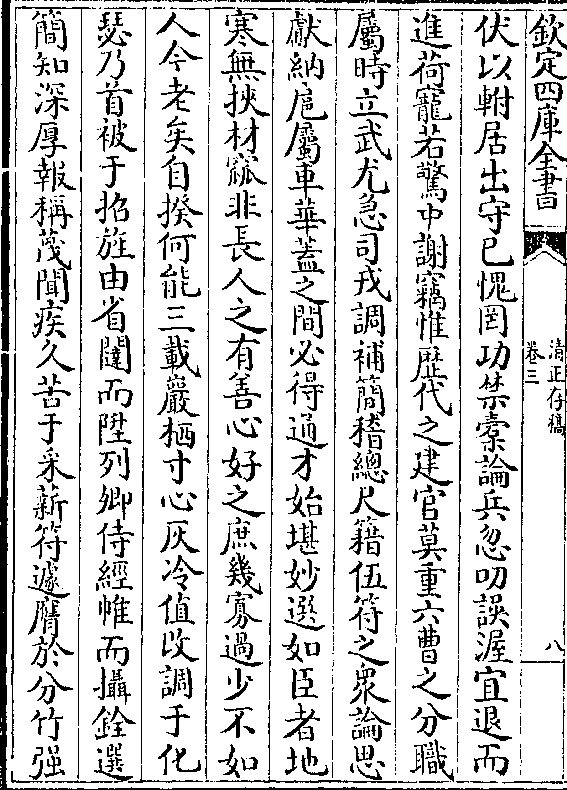 欽定四庫全書
清正存稿
卷三
八
伏以軵居出守已愧罔功禁橐論兵忽叨誤渥宜退而
進荷寵若驚中謝竊惟歴代之建官莫重六曹之分職
屬時立武尤急司戎調補簡稽總尺籍伍符之衆論思
獻納扈屬車華蓋之間必得通才始堪妙選如臣者地
寒無挾材窳非長人之有善心好之庶幾寡過少不如
人今老矣自揆何能三載嚴栖寸心灰冷值改調于化
瑟乃首被于招旌由省闥而陞列卿侍經帷而攝銓選
簡知深厚報稱蔑聞疾久苦于采薪符遽膺於分竹强